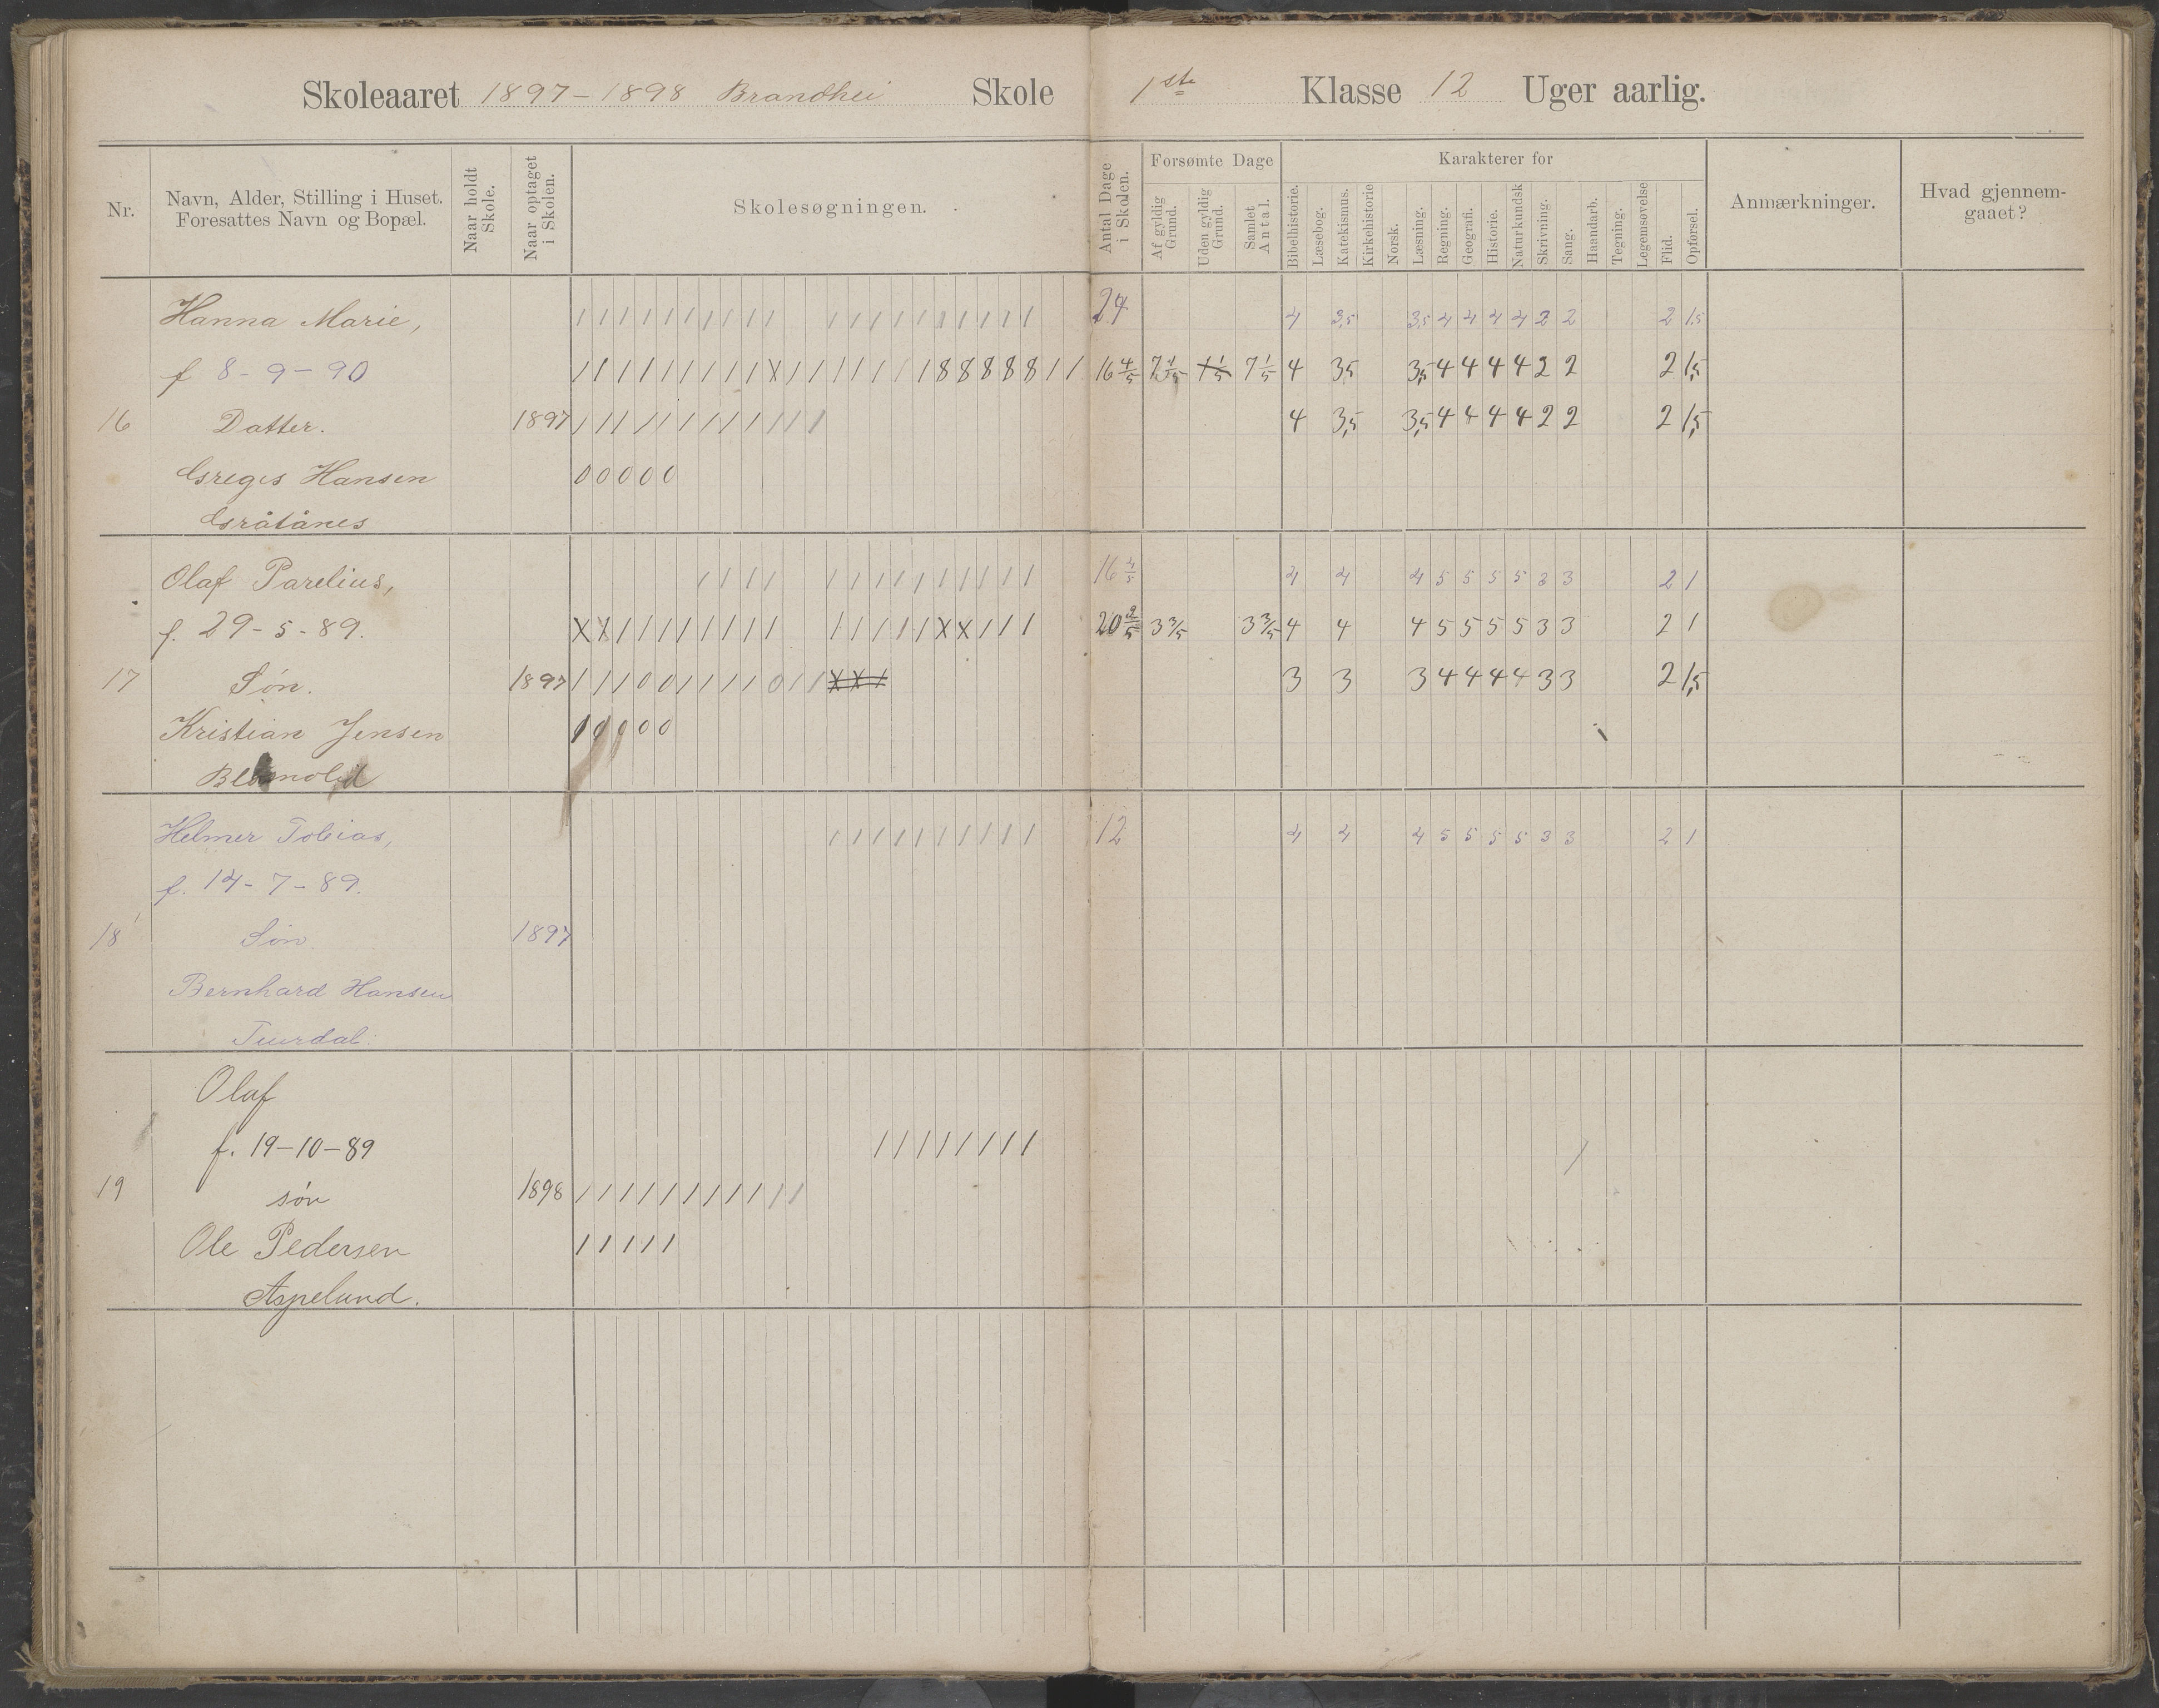 Skoleaaret 1897-1898 Brandhei Skole 1ste Klasse 12 Uger aarlig.
Nr.
Navn, Alder, Stilling i Huset.
Foresattes Navn og Bopæl.
Naar holdt
Skole.
Naar optaget
i Skolen.
Skolesøgningen.
Antal Dage
i Skolen.
Forsømte Dage
Af gyldig
Grund.
Uden gyldig
Grund.
Samlet
Antal.
Karakterer for
Bibelhistorie.
Læsebog.
Katekismus.
Kirkehistorie
Norsk.
Læsning.
Regning.
Geografi.
Historie.
Naturkundsk
Skrivning.
Sang.
Haandarb.
Tegning.
Legemsøvelse
Flid.
Opførsel.
Anmærkninger.
Hvad gjennem-
gaaet?
Hanna Marie, / / / / / / / / / / / / / / / / / / / / 24 4 3,5 3,5 4 4 4 4 2 2 2 1,5
f 8-9-90 / / / / / / / / / X / / / / / / / 8 8 8 8 8 / / 16 4/5 7 1/5 7 1/5 4 3,5 3,5 4 4 4 4 2 2 2 1,5
16 Datter. 1897 / / / / / / / / / / / / 4 3,5 3,5 4 4 4 4 2 2 2 1,5
Greges Hansen 0 0 0 0 0
Gråtånes
Olaf Parelius, / / / / / / / / / / / / / / 16 4/5 4 4 4 5 5 5 5 3 3 2 1
f. 29-5-89. X X / / / / / / / / / / / / / X X / / / 20 2/5 3 3/5 3 3/5 4 4 4 5 5 5 5 3 3 2 1
17 Søn. 1897 / / / 0 0 / / / / 0 / / X X / 3 3 3 4 4 4 4 3 3 2 1,5
Kristian Jensen / 0 0 0 0
Helmer Tobias, / / / / / / / / / / 12 4 4 4 5 5 5 5 3 3 2 1
f. 14-7-89.
18 Søn 1897
Bernhard Hansen
Tuurdal.
Olaf
f. 19-10-89 / / / / / / / /
19 søn 1898 / / / / / / / / / / /
Ole Pedersen / / / / /
Aspelund.